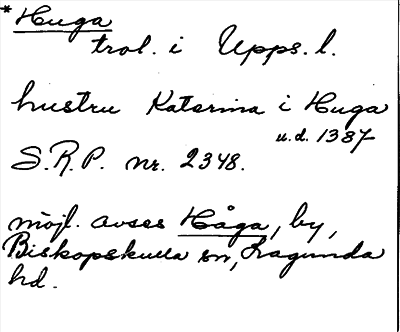 * Huga
trol. i Upps. l.
hustru Katarina i Huga
u.d. 1387
S.R.P. nr. 2348.
möjl. avses Håga, by,
Biskopskulla sn, Lagunda
hd.